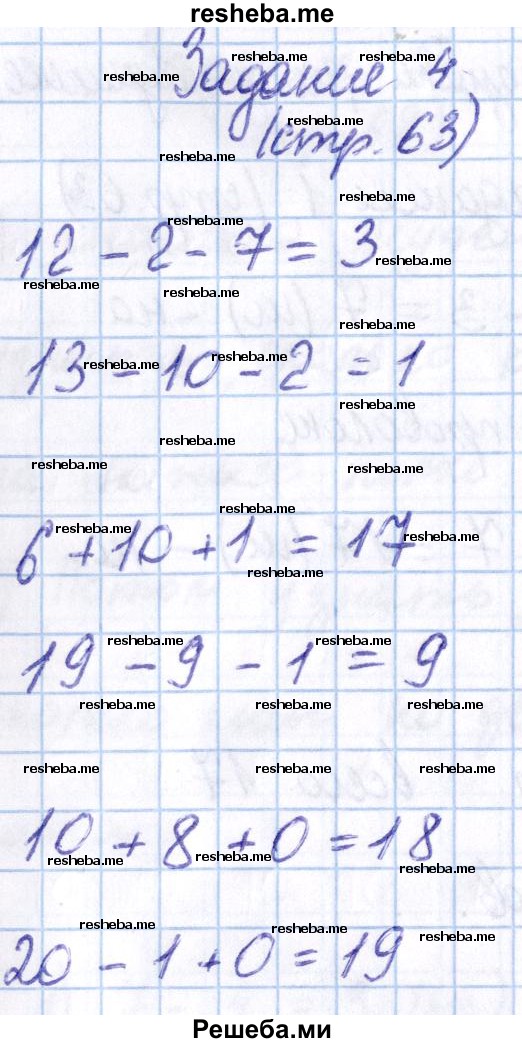 resheba.me
Задание 4
(стр. 63)
12 - 2 - 7 = 3
13 - 10 - 2 = 1
6 + 10 + 1 = 17
19 - 9 - 1 = 9
10 + 8 + 0 = 18
20 - 1 + 0 = 19
Решеба.ми